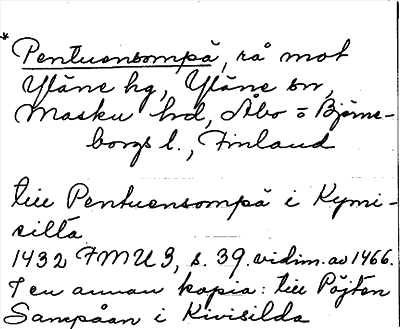 * Pentuensompä, rå mot
Yläne hg, Yläne sn,
Masku hd, Åbo o Björne-
borgs l., Finland
till Pentuensompä i Kymi-
siltä
1432 FMU 3, s. 39. vidim. av 1466.
I en annan kopia: till Pöjten
Sampåan i Kivisilda